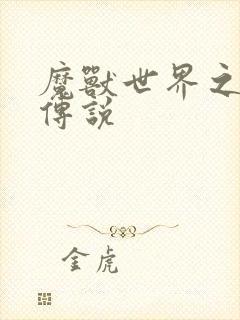 魔獸世界之
傳說
金虎